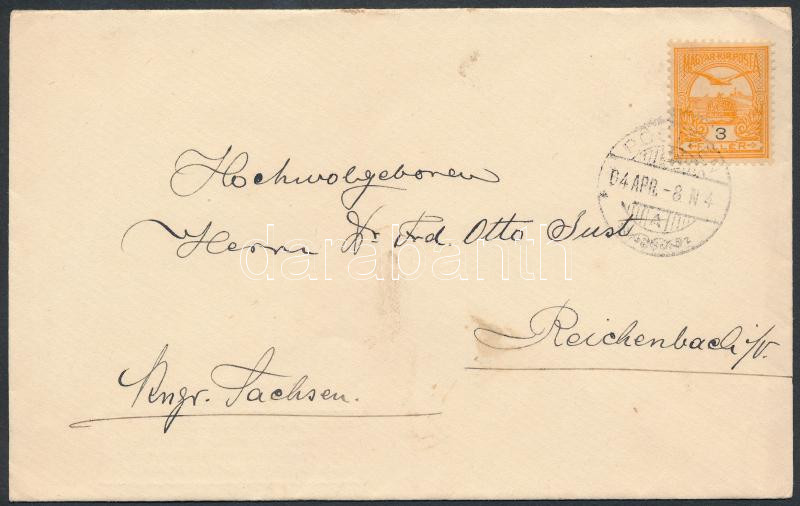 MAGYAR KIR. POSTA
3
FILLER
04 APR. -8. N 4
A
Hochwolgeboren
Herrn Dr. Frd. Otto Just
darabanth
Reichenbach i/V.
Kngr. Sachsen.